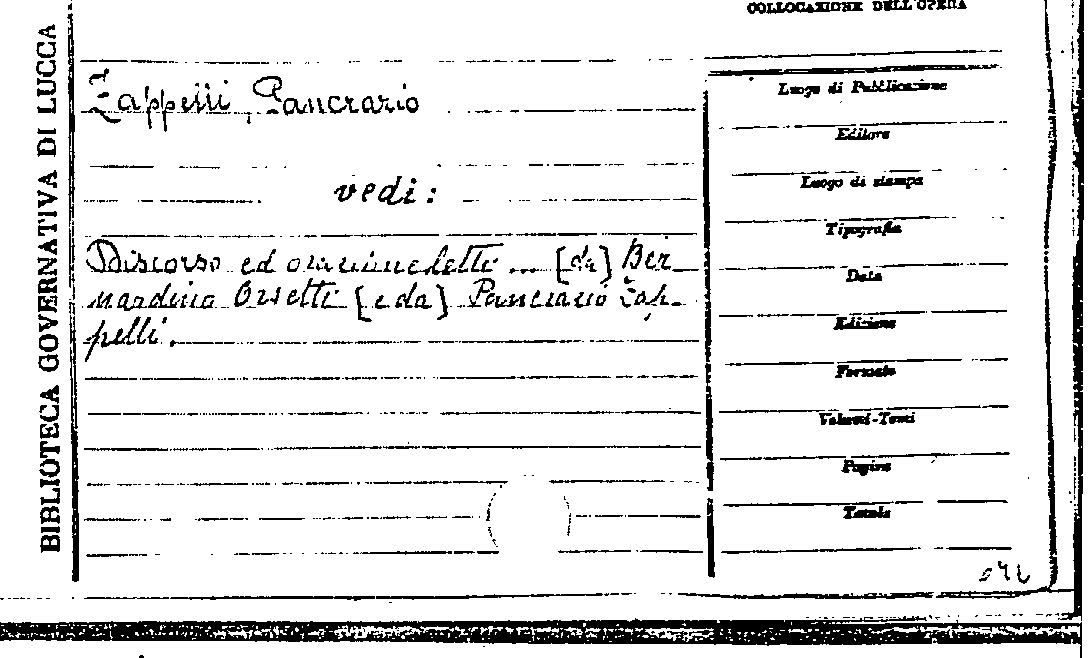 COLLOCAZIONE DELL'OPERA
BIBLIOTECA GOVERNATIVA DI LUCCA
Zappelli, Pancrazio
vedi:
Discorso ed orazione detti ... [da] Ber
nardino Orsetti [e da] Pancrazio Zap-
pelli.
Luogo di Pubblicazione
Editore
Luogo di stampa
Tipografia
Data
Edizione
Formato
Volumi-Tomi
Pagine
Tavole